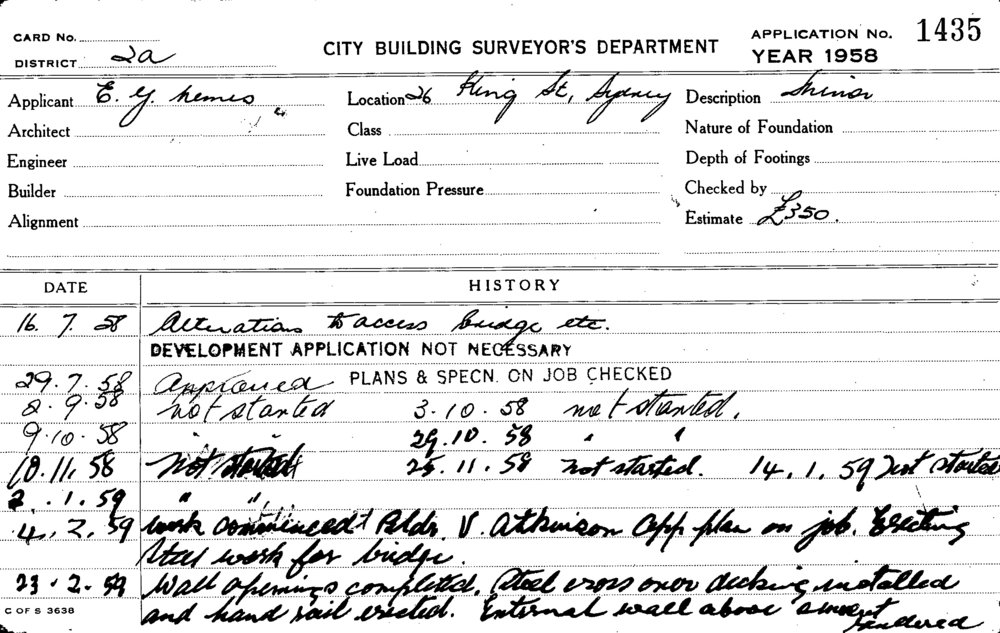 CARD No.
DISTRICT 2a
CITY BUILDING SURVEYOR'S DEPARTMENT
APPLICATION No. 1435
YEAR 1958
Applicant E. G. Nemes
Location 26 King St, Sydney
Description Minor
Architect
Class
Nature of Foundation
Engineer
Live Load
Depth of Footings
Builder
Foundation Pressure
Checked by
Alignment
Estimate £350.
DATE HISTORY
16. 7. 58 Alterations to access bridge etc.
DEVELOPMENT APPLICATION NOT NECESSARY
29.7.58 Approved PLANS & SPECN. ON JOB CHECKED
8.9.58 not started 3.10.58 not started.
9.10.58 " " 29.10.58 " "
10.11.58 Not started 25.11.58 not started. 14.1.59 Not started
2.1.59 " "
4.2.59 work commenced Bldr. V. Atkinson app plan on job. Erecting
steel work for bridge.
23.2.59 Wall openings completed, steel cross over decking installed
and hand rail erected. Internal wall above cement
rendered
C OF S 3638